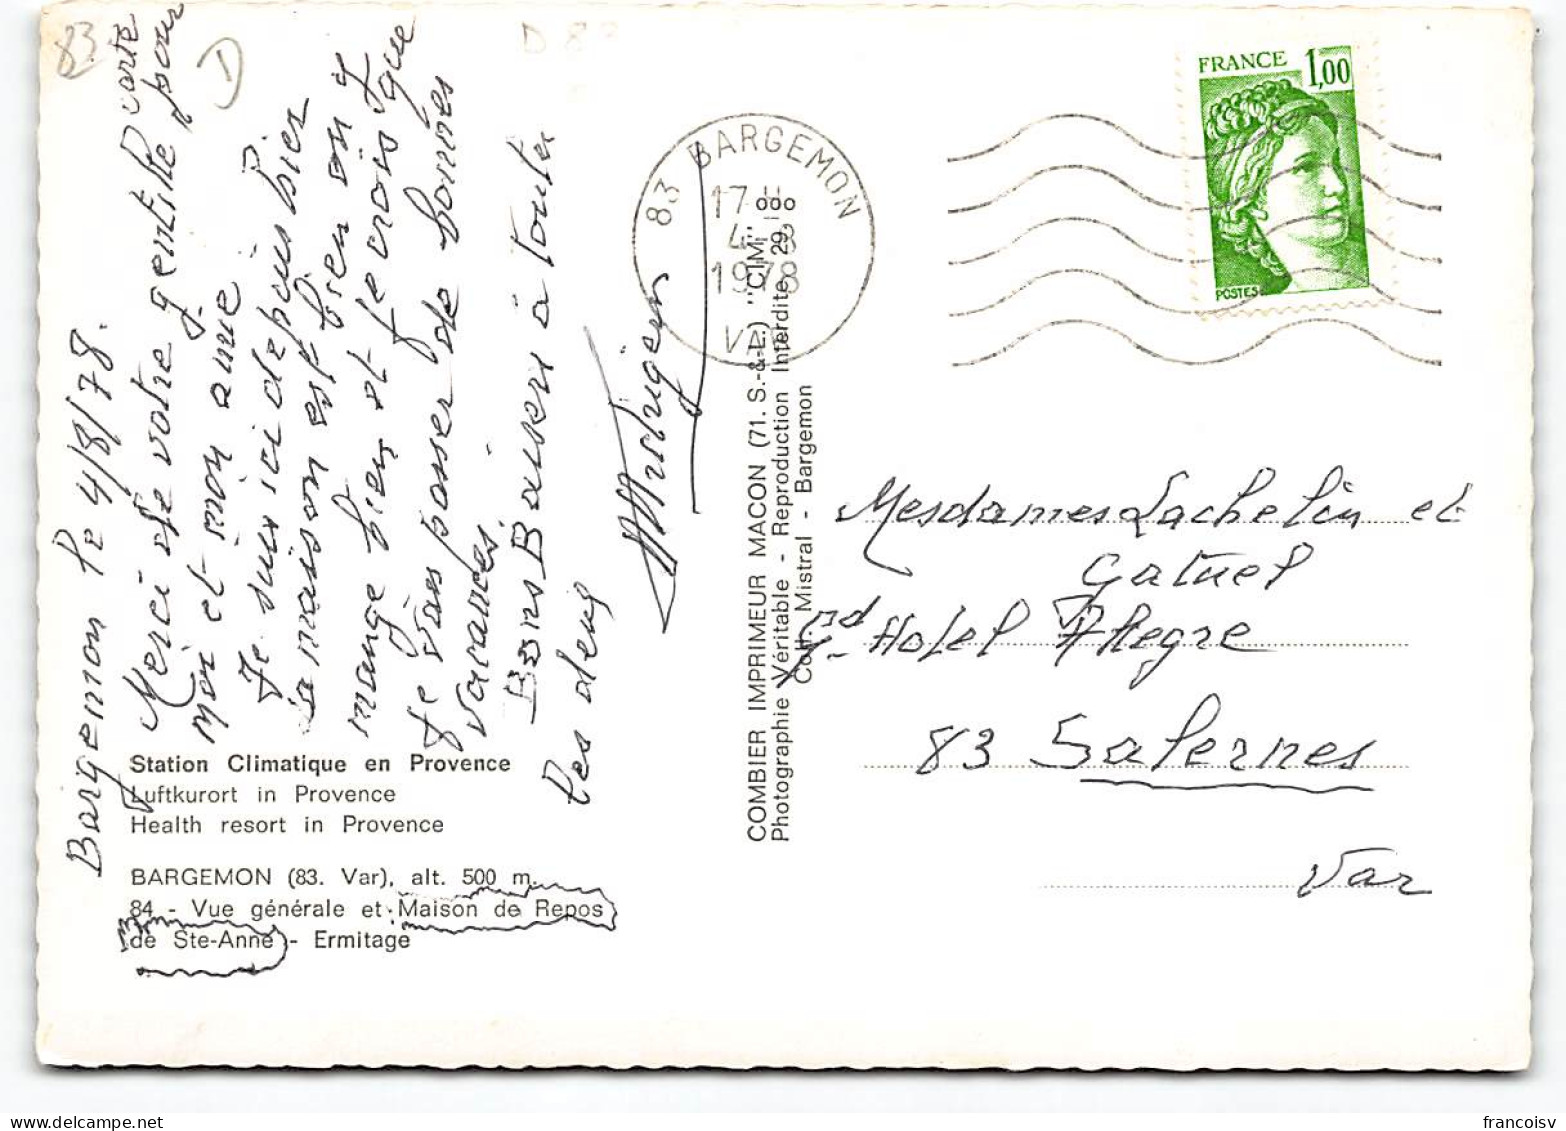 83
D
D 83
Bargemon le 4/8/78.
Merci de votre gentille carte
pour
moi et mon amie
Je suis ici depuis hier
la maison est bien on y
mange bien et je crois que
je vais passer de bonnes
vacances
Bons Baisers à toutes
les deux
Station Climatique en Provence
Luftkurort in Provence
Health resort in Provence
BARGEMON (83. Var), alt. 500 m.
84 - Vue générale et Maison de Repos
de Ste-Anne - Ermitage
COMBIER IMPRIMEUR MACON (71. S.-&-L.) "CIM"
Photographie Véritable - Reproduction Interdite
Coll. Mistral - Bargemon
83 BARGEMON
17 H
4-8
1978
VAR
FRANCE 1,00
POSTES
Mesdames Lachelin et
Gatuel
Gd Hotel Allegre
83 Salernes
Var
francoisv